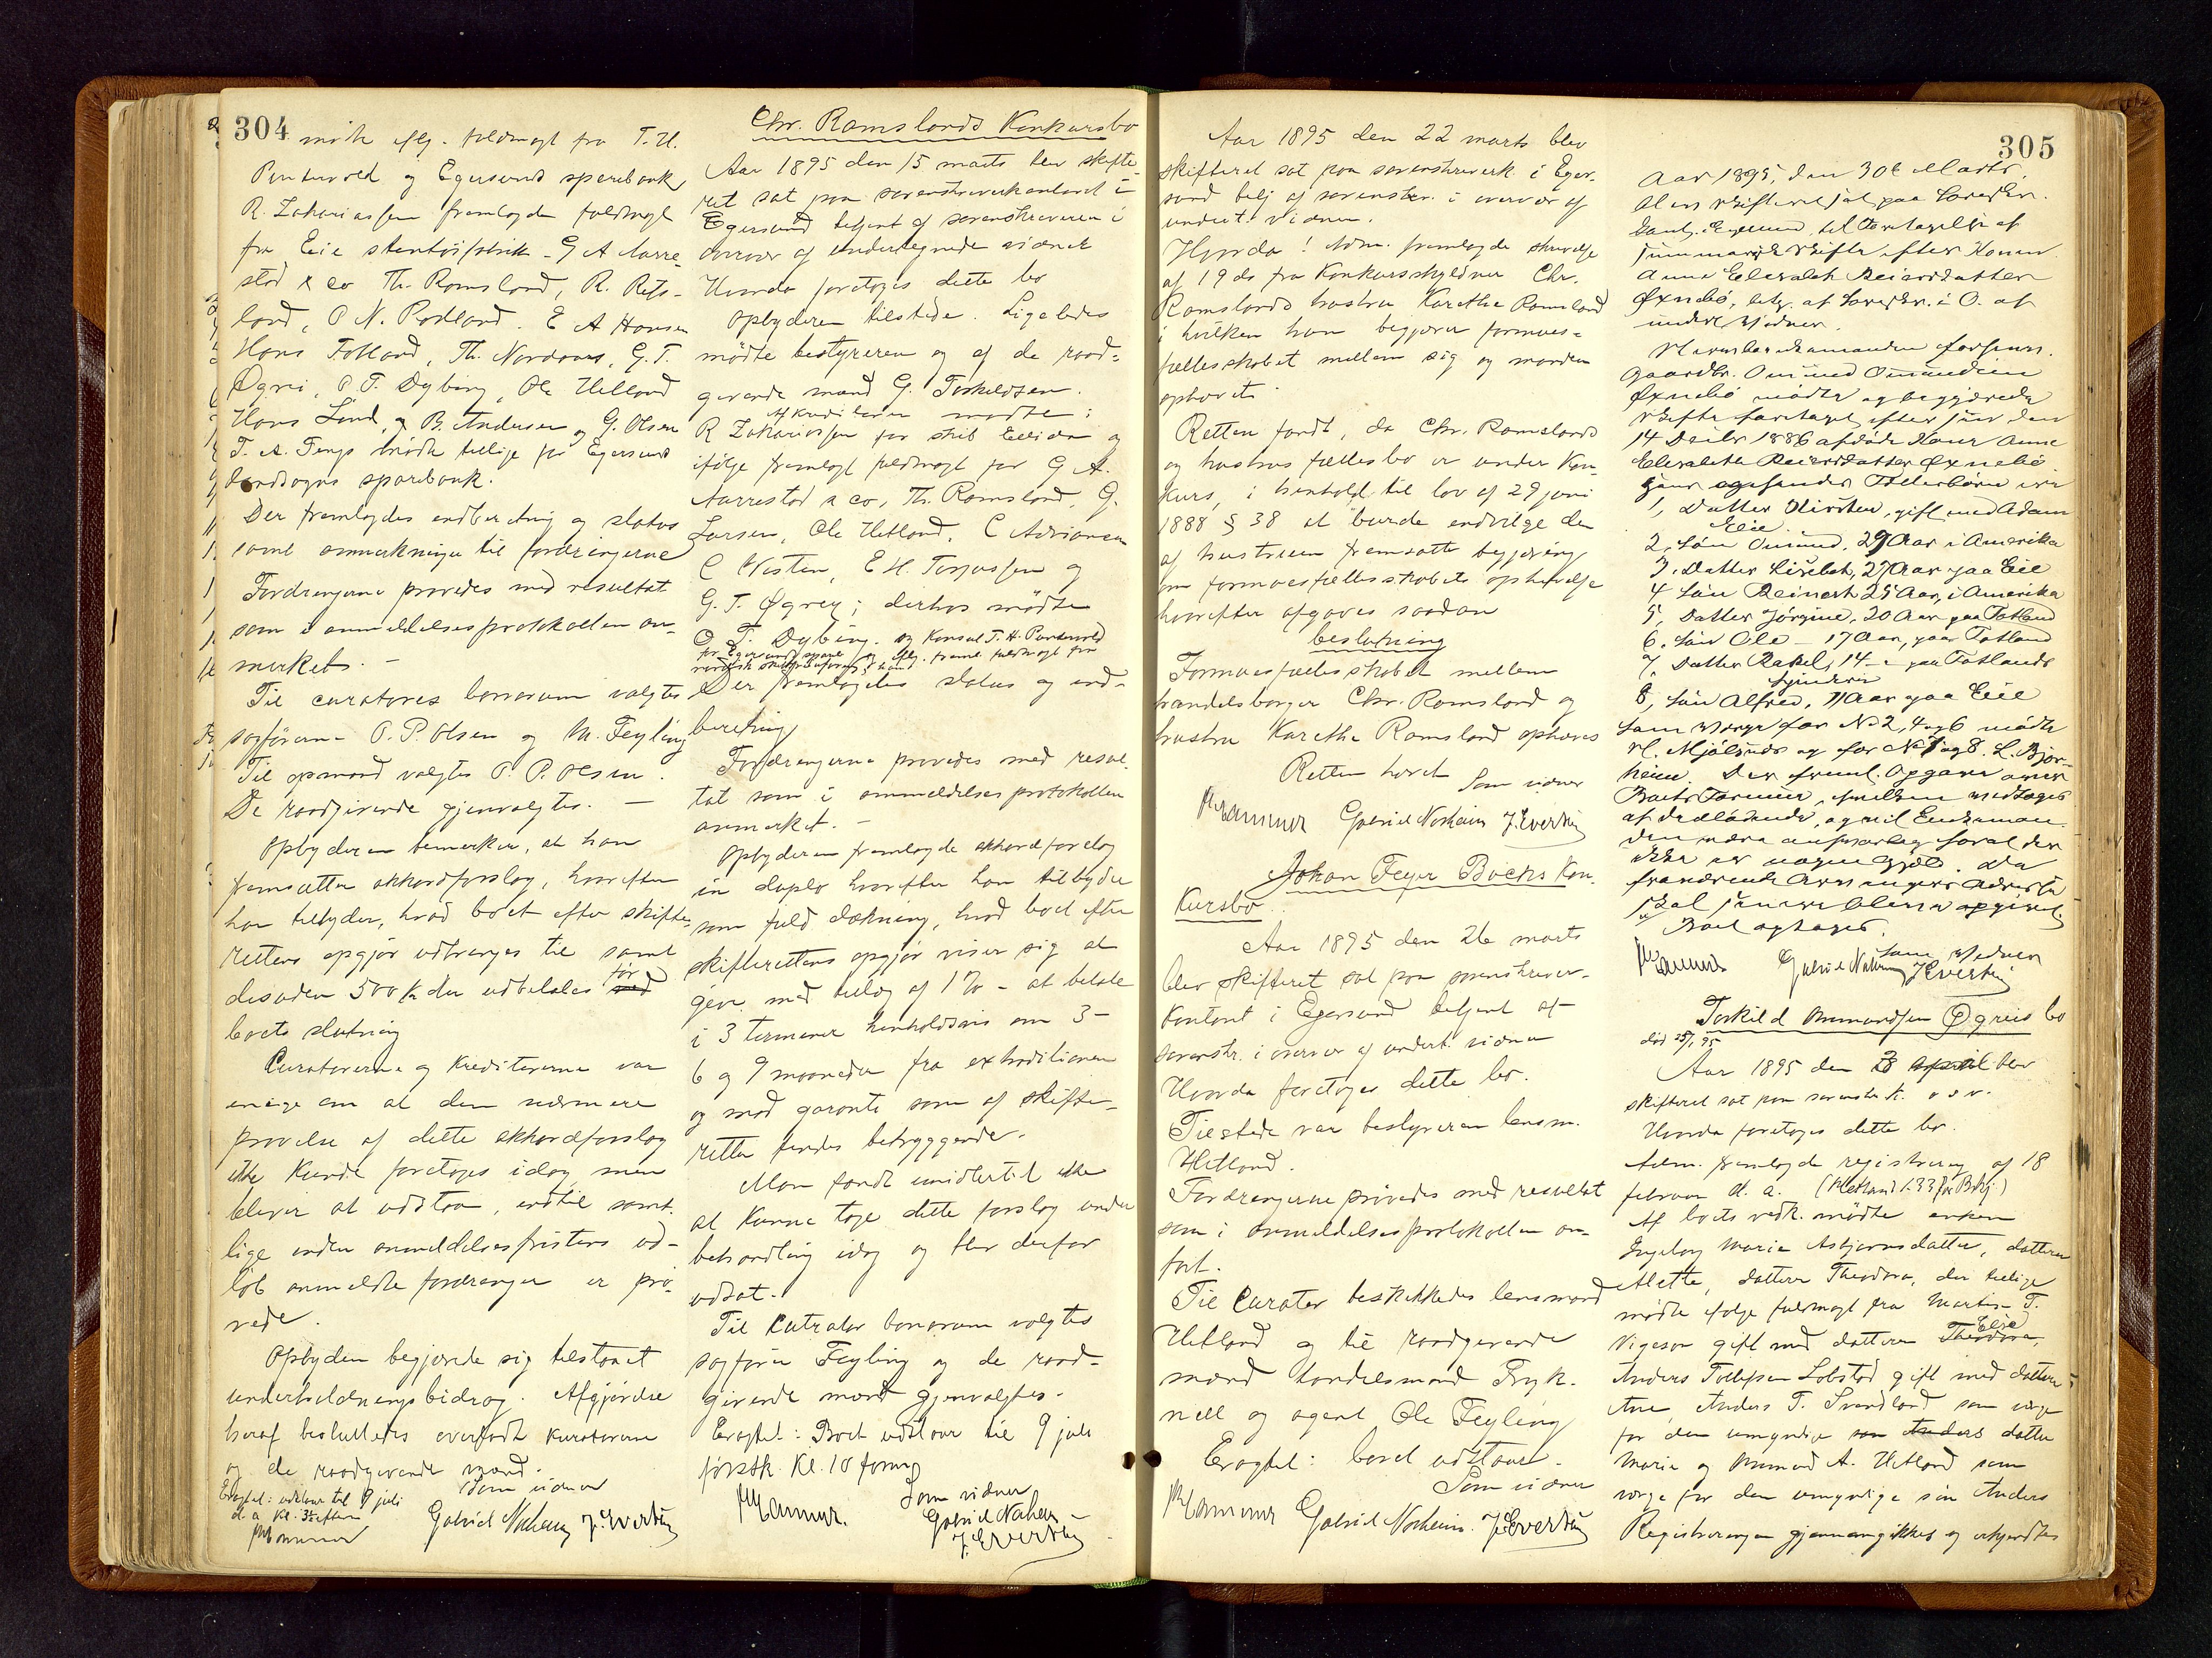 304
møtte iflg. fuldmagt fra T. H.
Puntervold og Egersunds sparebank
R. Zakariassen fremlagde fuldmagt
fra Eie stentøifabrik - G A Aarre-
stad & co Th. Ramsland, R. Refs-
land, O N. Rodland. E A Hansen
Hans Fotland, Th. Nordaas, G. T.
Øgrei, O. T. Dybing, Ole Helland
Hans Lind, og B. Andersen og G. Olsen
T. A. Fengs mødte tillige for Egersund
landsogns sparebank.
Der fremlagdes indberetning og status
samt anmerkninger til fordringerne
Fordringerne prøvedes med resultat
som i anmeldelsesprotokollen an-
merket. -
Til curatores bonorum valgtes
sagførerne O. P. Olsen og M. Feyling
Til opmand valgtes O. P. Olsen.
De raadgivende gjenvalgtes. -
Opbyderen bemerker, at han
fremsætter akkordforslag, hvorefter
han tilbyder, hvad boet efter skifte-
rettens opgjør udbringes til samt
desuden 500 kr der udbetales før
boets slutning
Curatorerne og Kreditorerne var
enige om at den nærmere
prøvelse af dette akkordforslag
ikke kunde foretages idag, men
bliver at udstaa, indtil samt-
lige inden anmeldelsesfristens ud-
løb anmeldte fordringer er prø-
vede.
Opbyderen begjærede sig tilstaaet
underholdningsbidrag. Afgjørelse
heraf besluttedes overladt kuratorerne
og de raadgivende mænd.
Eragtet: udstaar til 9 juli
d. a. Kl. 3½ efterm
Som vidner
Gabriel Nocheim J. Evertsen
Chr. Ramslands Konkursbo
Aar 1895 den 15 marts blev skifte-
ret sat paa sorenskriverkontoret i
Egersund betjent af sorenskriveren i
overvær af undertegnede vidner
Hvorda foretoges dette bo
Opbyderen tilstede. Ligeledes
mødte bestyreren og af de raad-
givende mænd G. Torkildsen.
Af kreditorer mødte:
R Zakariassen for skib Ellida og
ifølge fremlagt fuldmagt for G A.
Aarrestad & co, Th. Ramsland, G.
Larsen, Ole Hetland, C Adriansen
C Westen, E H. Torjussen og
G. T. Øgrey; derhos mødte
O. T. Dybing. og Konsul T. H. Puntervold
for Egersunds spareb og iflg. freml. fuldmagt fra
Der fremlagdes status og ind-
beretning
Fordringerne prøvedes med resul-
tat som i anmeldelsesprotokollen
anmerket. -
Opbyderen fremlagde akkordforslag
in duplo hvorefter han tilbyder
som fuld dækning, hvad boet efter
skifterettens opgjør viser sig at
give med tillæg af 1 % - at betale
i 3 terminer henholdsvis om 3 -
6 og 9 maaneder fra extraditionen
og mod garanti som af skifte-
retten findes betryggende.
Man fandt imidlertid ikke
at kunne tage dette forslag under
behandling idag og blev derfor
udsat.
Til kurator bonorum valgtes
sagfører Feyling og de raad-
givende mænd gjenvalgtes.
Eragtet: Boet udstaar til 9 juli
førstk. Kl. 10 formg
Som vidner
Gabriel Nocheim
J. Evertsen
305
Aar 1895 den 22 marts blev
skifteret sat paa sorenskriverk. i Eger-
sund betj af sorenskr. i overvær af
undert. vidner.
Hvorda! Adm. fremlagde skrivelse
af 19 ds fra Konkursskyldner Chr.
Ramslands hustru Karethe Ramsland
i hvilken hun begjærer formues-
fællesskabet mellem sig og manden
ophævet
Retten fandt, da Chr. Ramslands
og hustrus fællesbo er under Kon-
kurs, i henhold til lov af 29 juni
1888 § 38 at burde indvilge den
af hustruen fremsatte begjæring
om formuesfællesskabets ophævelse
hvorefter afgaves saadan
beslutning
Formuesfællesskabet mellem
handelsborger Chr. Ramsland og
hustru Karethe Ramsland ophæves
Retten hævet
Som vidner
Gabriel Nocheim J. Evertsen
Johan Feyer Boches Kon-
kursbo
Aar 1895 den 26 marts
blev skifteret sat paa sorenskriver-
kontoret i Egersund betjent af
sorenskr. i overvær af undert. vidner
Hvorda foretoges dette bo.
Tilstede var bestyreren lensm.
Hetland.
Fordringerne prøvedes med resultat
som i anmeldelsesprotokollen an-
ført.
Til Curator beskikkedes lensmand
Hetland og til raadgivende
mænd handelsmand Fryk-
nell og agent Ole Feyling
Eragtet: boet udstaar.
Som vidner
Gabriel Nocheim. J. Evertsen
Aar 1895, den 30te Marts,
blev skifteret sat paa Sorenskr.
Kont. i Egersund til Foretagelse af
summarisk Skifte efter Kone
Anne Elisabeth Reiersdatter
Øxnebø, betj. af Sorenskr. i O. af
undert Vidner.
Gaardbr. Omund Omundsen
Øxnebø mødte og begjærede
Skifte foretaget efter sin den
14 Decbr 1886 afdøde Kone Anne
Elisabeth Reiersdatter Øxnebø
1, Datter Kirsten, gift med Adam
Eie
2, Søn Omund, 29 Aar i Amerika
3. Datter Lisebet, 27 Aar paa Eie
4 Søn Reinert 25 Aar, i Amerika
5, Datter Jørgine, 20 Aar paa Fotland
6, Søn Ole - 17 Aar, paa Fotland
7, Datter Rakel, 14 - paa Fotlands
8, Søn Alfred, 11 Aar paa Eie
Som Værge for No 2, 4 og 6 mødte
H. Mjølsnes og for No 7 og 8. L. Bjor-
heim. Der freml. Opgave over
Boets Formue, hvilken modtages
ikke er nogen Gjæld. Da
Boet optages.
Som Vidner
Gabriel Nocheim J. Evertsen
Torkild Ommundsen Øgreis bo
død 25/1 95
Aar 1895 den 3 april blev
skifteret sat paa sorenskr. k. o s v.
Hvorda foretoges dette bo.
Adm. fremlagde registrering af 18
februar d. a. (Hetland 1.33 for Bskj.)
Af boets vedk. mødte enken
Ingeborg Marie Asbjørnsdatter, datteren
Mette, datteren Theodora, der tillige
mødte ifølge fuldmagt fra Martin T.
Vigeson gift med datteren Theodora, Elise
Anders Tollefsen Lobstad gift med datteren
Ane, Anders T. Svandland som værge
for den umyndige son Anders datter
Marie og Ommund A. Hetland som
værge for den umyndige søn Anders
Registreringen gjennemgikkes og vedkjendtes